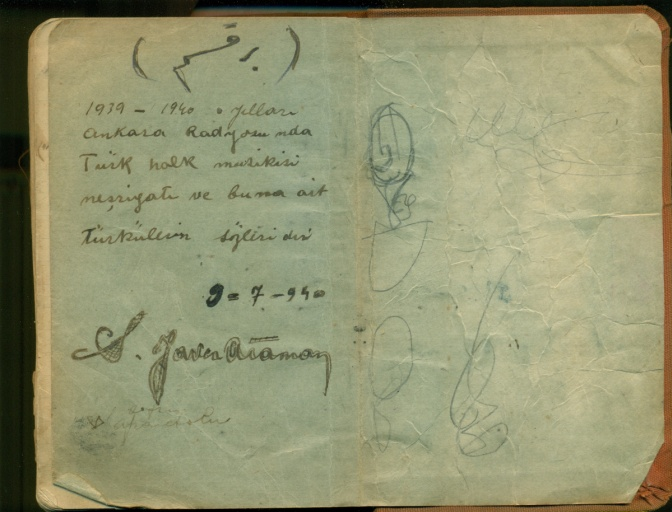 1939 – 1940 yılları
Ankara Radyosu nda
Türk halk musikisi
neşriyatı ve buna ait
türkülerin sözleridir
9 = 7 – 940
S. Yaver Ataman